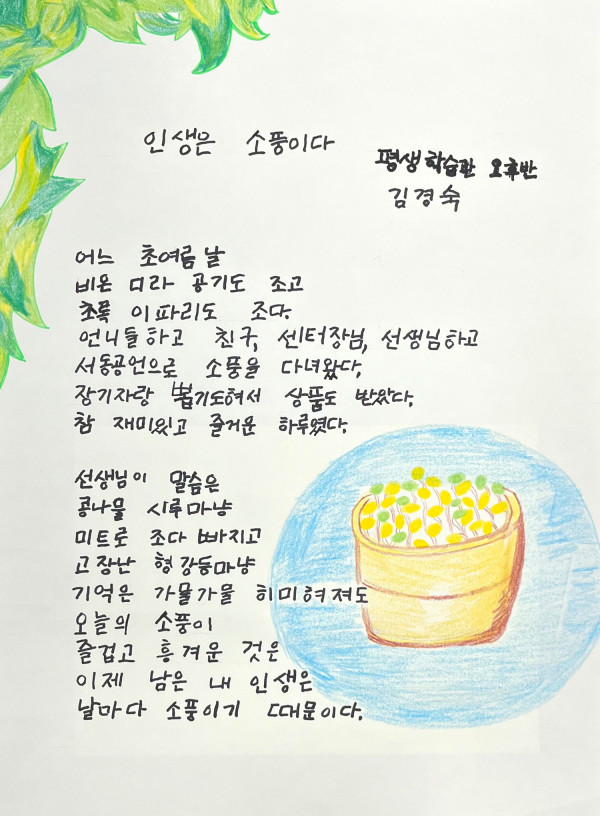 인생은 소풍이다
평생학습관 오후반
김경숙
어느 초여름날
비온 띠라 공기도 조고
초록 이파리도 조다.
언니들하고 친구, 센터장님, 선생님하고
서동공언으로 소풍을 다녀왔다.
장기자랑 뽑기도혀서 상품도 받았다.
참 재미있고 줄거운 하루였다.
선생님이 말슴은
콩나물 시루마냥
미트로 조다 빠지고
고장난 형강등마냥
기억은 가물가물 히미혀져도
오늘의 소풍이
즐겁고 흥겨운 것은
이제 남은 내 인생은
날마다 소풍이기 때문이다.